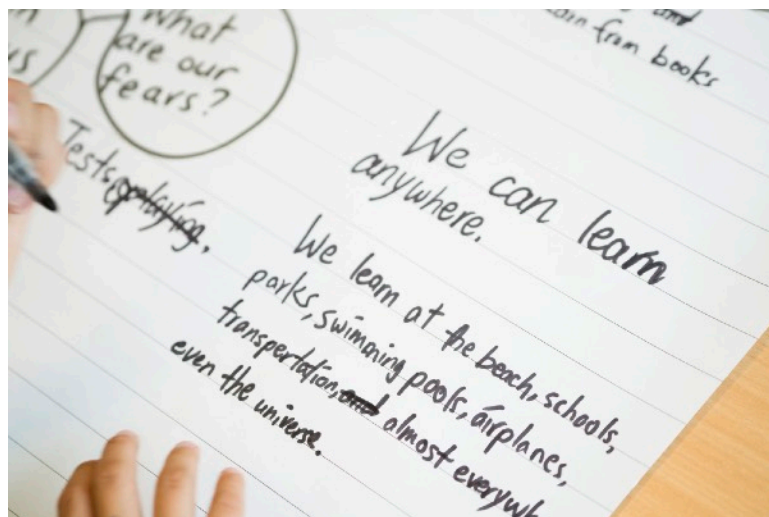 What
are our
fears?
and
from books
Tests, playing,
We can learn
anywhere.
We learn at the beach, schools,
parks, swimming pools, airplanes,
transpertation, and almost everywh
even the universe.